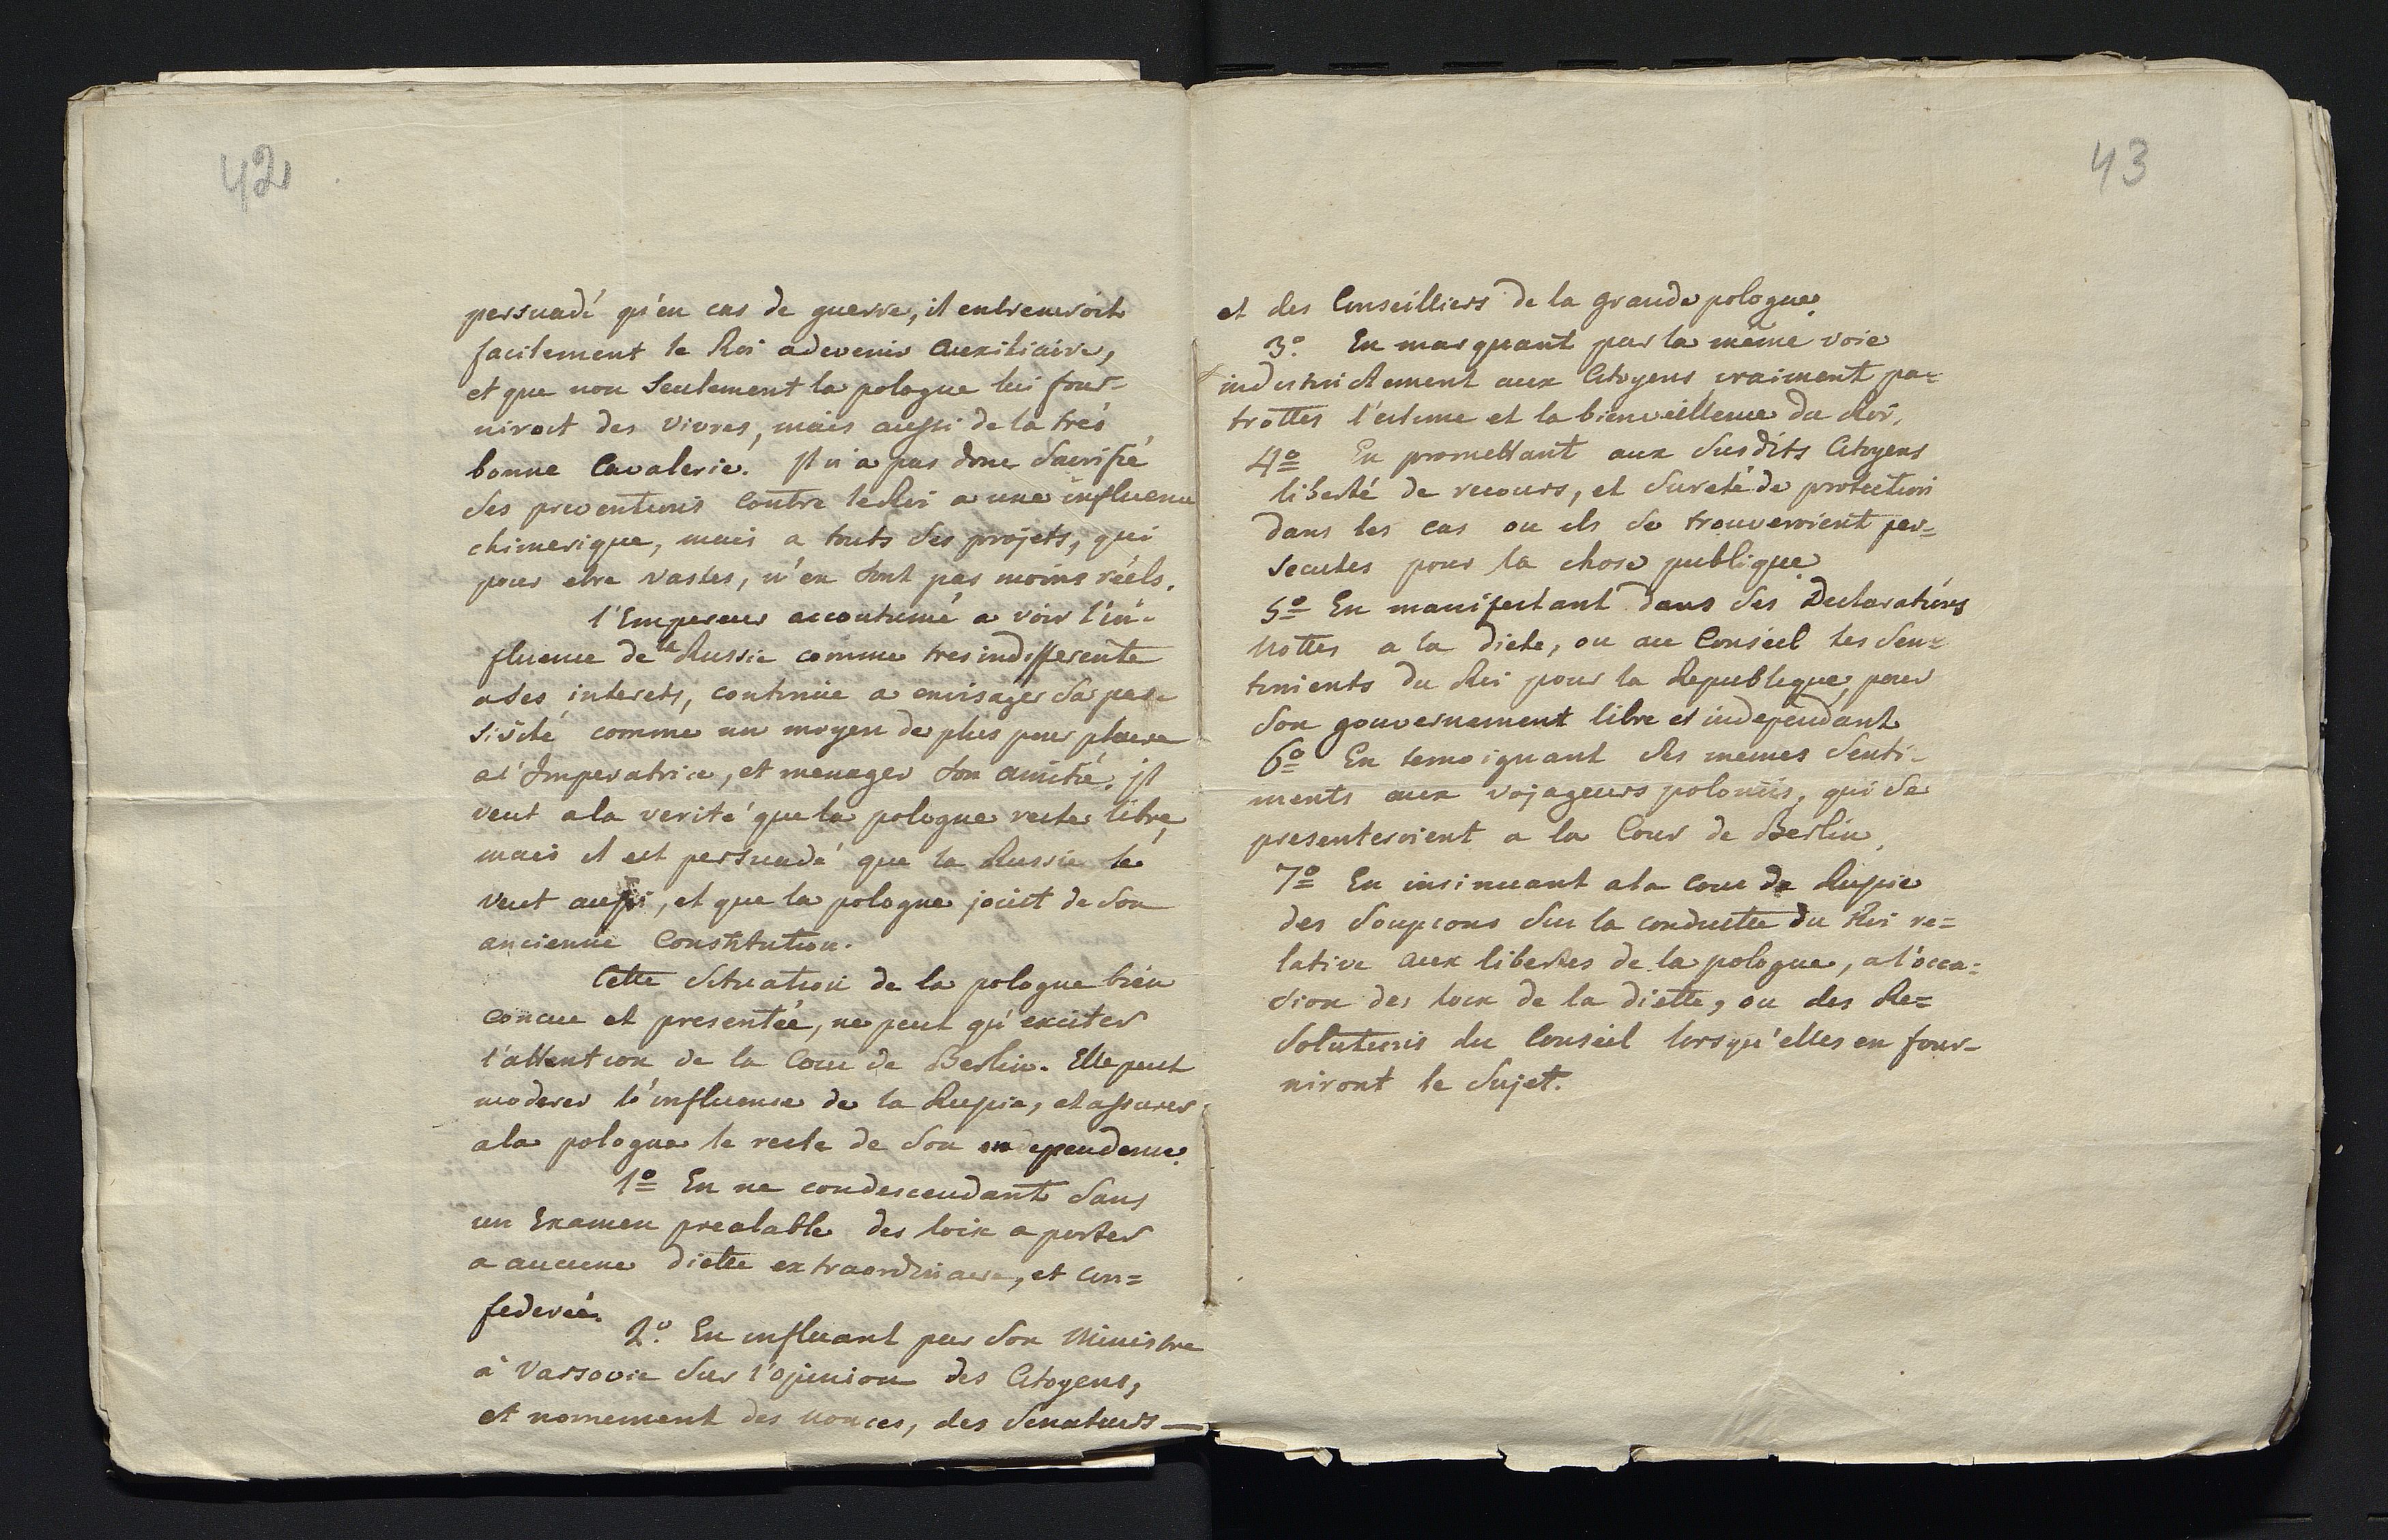 42
persuadé qu'en cas de guerre, il entreneroit
facilement le Roi a devenir auxiliaire,
et que non seulement la pologne lui four-
niroit des vivres, mais aussi de la trés
bonne Cavalerie. Il n'a pas donc sacrifié
ses preventions contre le Roi a une influence
chimerique, mais a touts ses projets, qui
pour etre vastes, n'en sont pas moins réels.
l'Empereur accoutumé a voir l'in-
fluence de la Russie comme tres indifferente
a ses interets, continue a envisager sa pas-
sivité comme un moyen de plus pour plaire
a l'Imperatrice, et menager son amitié. Il
veut a la verité que la pologne reste libre,
mais il est persuadé que la Russie le
veut aussi, et que la pologne jouit de son
ancienne Constitution.
Cette situation de la pologne bien
concue et presentée, ne peut qu'exciter
l'attention de la Cour de Berlin. Elle peut
moderer l'influence de la Russie, et assurer
a la pologne le reste de son independence.
1º En ne condescendant sans
un Examen prealable des loix a porter
a aucune diette extraordinaire, et con=
federée.
2º. En influant par son Ministre
à Varsovie sur l'opinion des Citoyens,
et nomement des nonces, des Senateurs
43
et des Conseilliers de la grande pologne.
3º. En marquant par la même voie
indistinctement aux Citoyens vraiment pa-
trottes l'estime et la bienveillence du Roi.
4º En promettant aux susdits Citoyens
liberté de recours, et sureté de protection
dans les cas ou ils se trouveroient per=
secutes pour la chose publique
5º En manifestant dans ses Declarations
Nottes a la diete, ou au Conseil les sen-
timents du Roi pour la Republique, pour
son gouvernement libre et independant
6º En temoignant les memes senti-
ments aux voyageurs polonois, qui se
presenteroient a la Cour de Berlin.
7º En insinuant a la cour de Russie
des soupcons sur la conduitte du Roi re=
lative aux libertes de la pologne, a l'occa=
sion des loix de la diette, ou des Re=
solutions du Conseil lorsqu'elles en four-
niront le sujet.